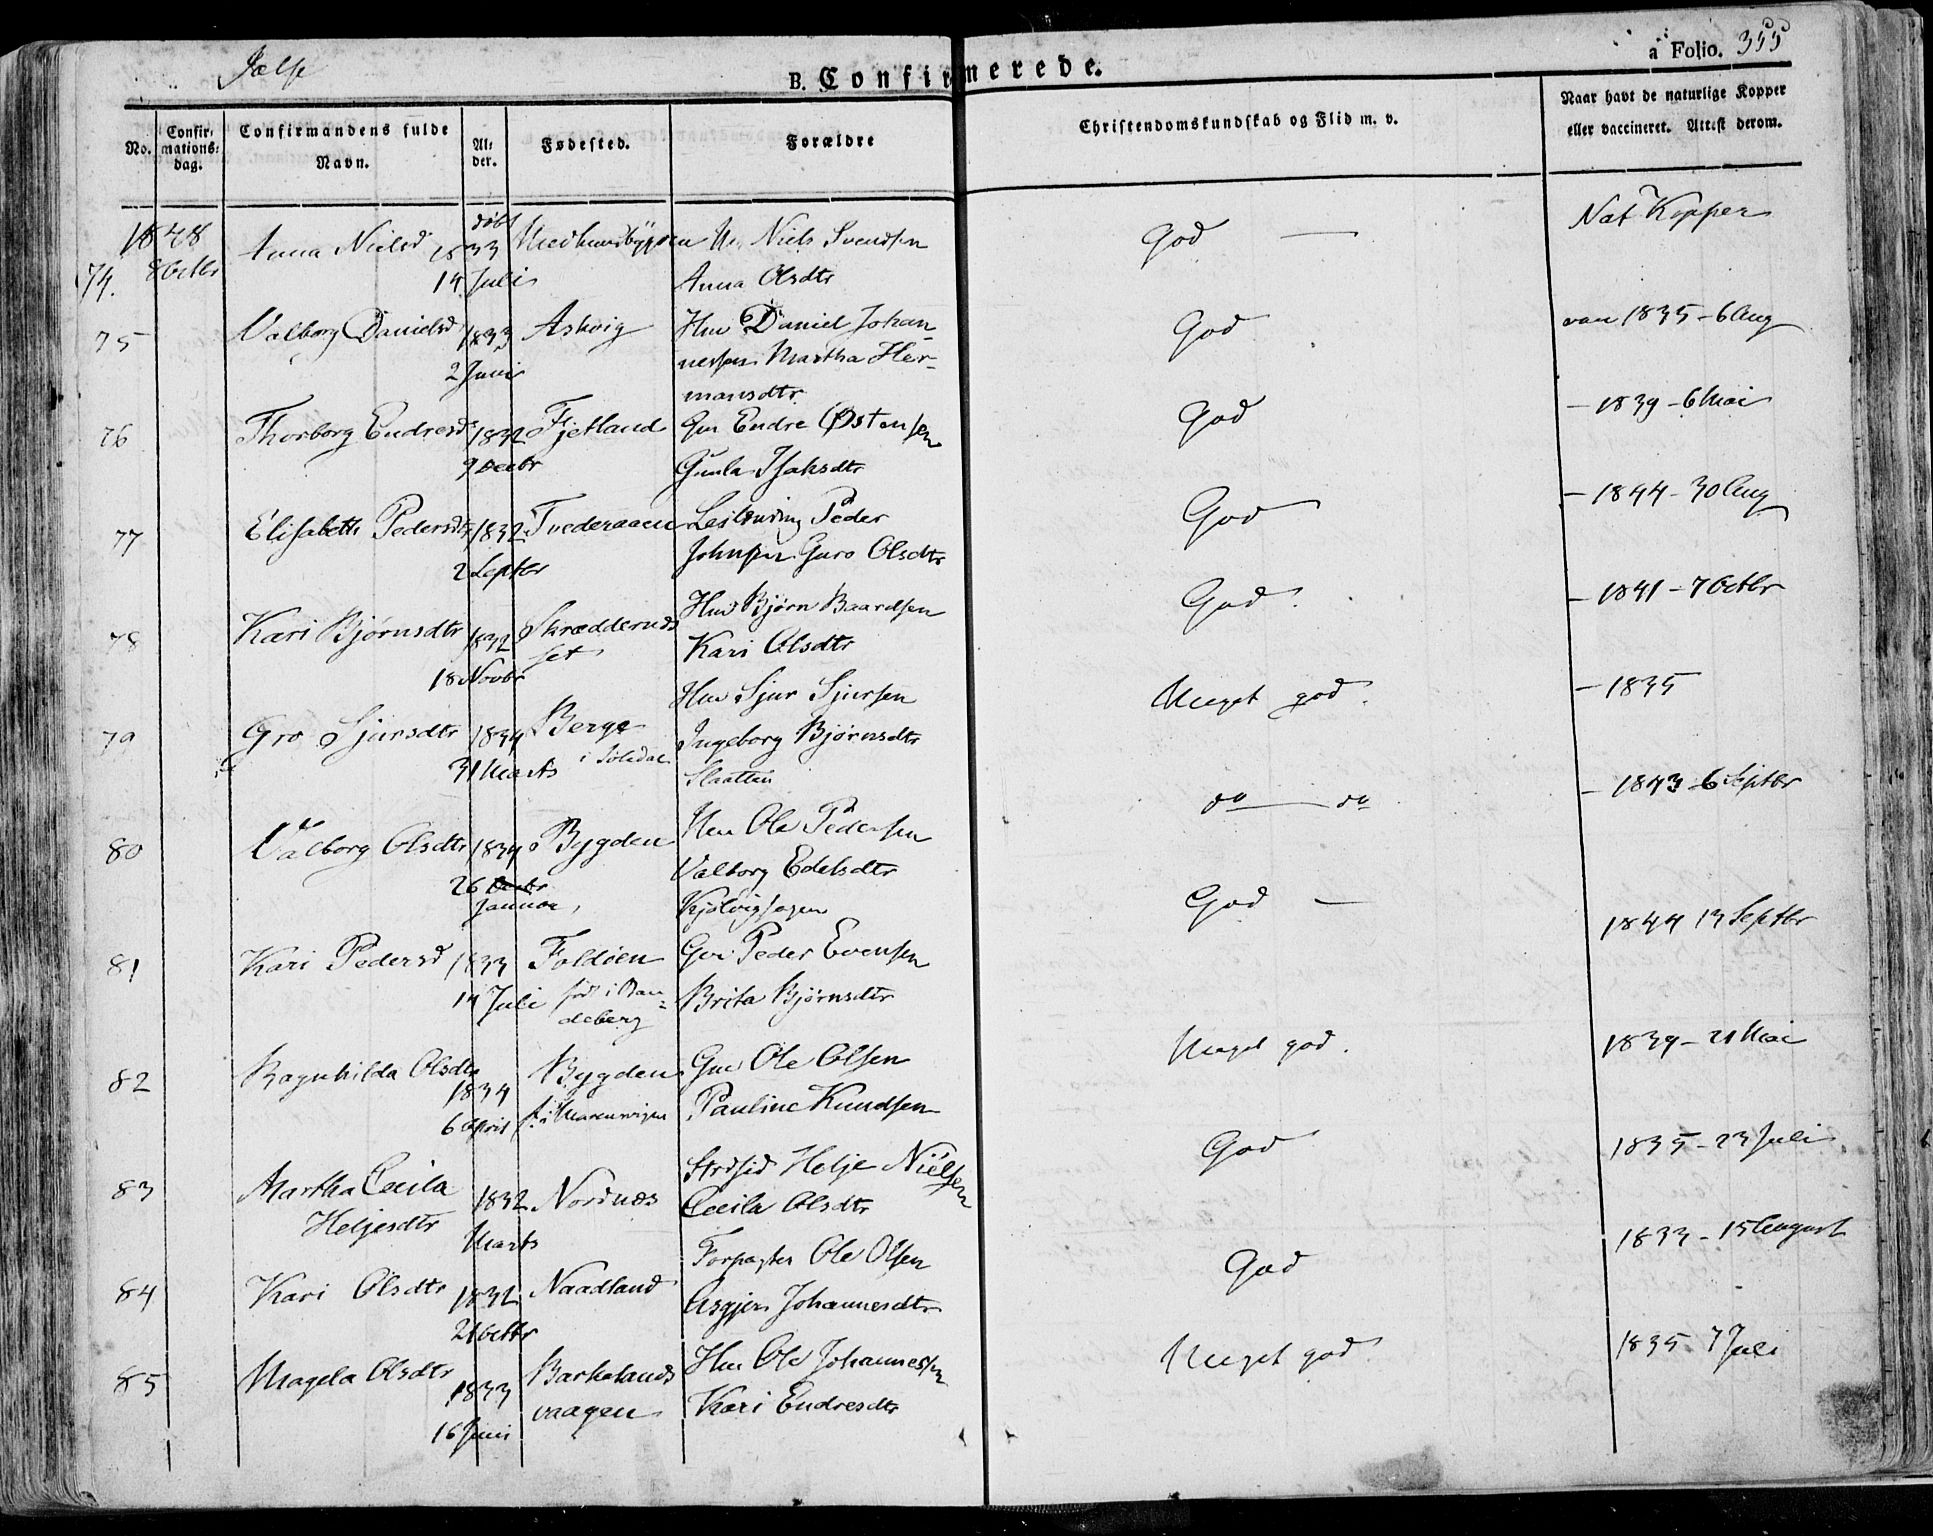 Jælse
B. Confirmerede.
a Folio. 355
No.
Confir-
mations-
dag.
Confirmandens fulde
Navn.
Al-
der.
Fødested.
Forældre
Christendomskundskab og Flid m. v.
Naar havt de naturlige Kopper
eller vaccineret. Attest derom.
1848
74. 8 Octbr Anna Nielsd døbt 1833 14 Juli Niels Svendsen
Anna Olsdtr
God — Nat Kopper
75 Valborg Danielsd 1833 2 Juni Asheig Hmd Daniel Johan-
nessen Martha Her-
mansdtr
God vac 1835 - 6 Aug
76 Thorborg Endresd 1832 9 Decbr Fjetland Gm Endre Østensen
Gunla Isaksdtr
God — 1839 - 6 Mai
77 Elisabeth Pedersdtr 1832 2 Septbr Tvederaaen Peder
Johnsen Guro Olsdtr
God — 1844 - 30 Aug
78 Kari Bjørnsdtr 1832 18 Novbr Skrædderud-
set
Hmd Bjørn Baardsen
Kari Olsdtr
God. — 1841 - 7 Octbr
79 Gro Sjursdtr 1834 31 Marts Berge
i Suledal
Hmd Sjur Sjursen
Ingeborg Bjørnsdtr
Slaatten
Meget god. — 1835
80 Valborg Olsdtr 1834 26 Januar Bygden Hm Ole Pedersen
Valborg Edelsdtr
do — do — 1843 - 6 Septbr
81 Kari Pedersd 1833 14 Juli Foldøen
født i Ran-
deberg
Gm Peder Evensen
Brita Bjørnsdtr
God — 1844 13 Septbr
82 Ragnhilda Olsdtr 1834 6 April Bygden
Gm Ole Olsen
Pauline Knudsen
Meget god. 1839 - 21 Mai
83 Martha Cecila
Heljesdtr
1832 Marts Nordnæs Strdsid Helje Nielsen
Cecila Olsdtr
God 1835 - 23 Juli
84 Kari Olsdtr 1832 21 Octbr Naadland Forpagter Ole Olsen
Asgjer Johannesdtr
God 1833 - 15 August
85 Magela Olsdtr 1833 16 Juni Barkelands
vaagen
Hm Ole Johannessen
Kari Endresdtr
Meget god. 1835 7 Juli